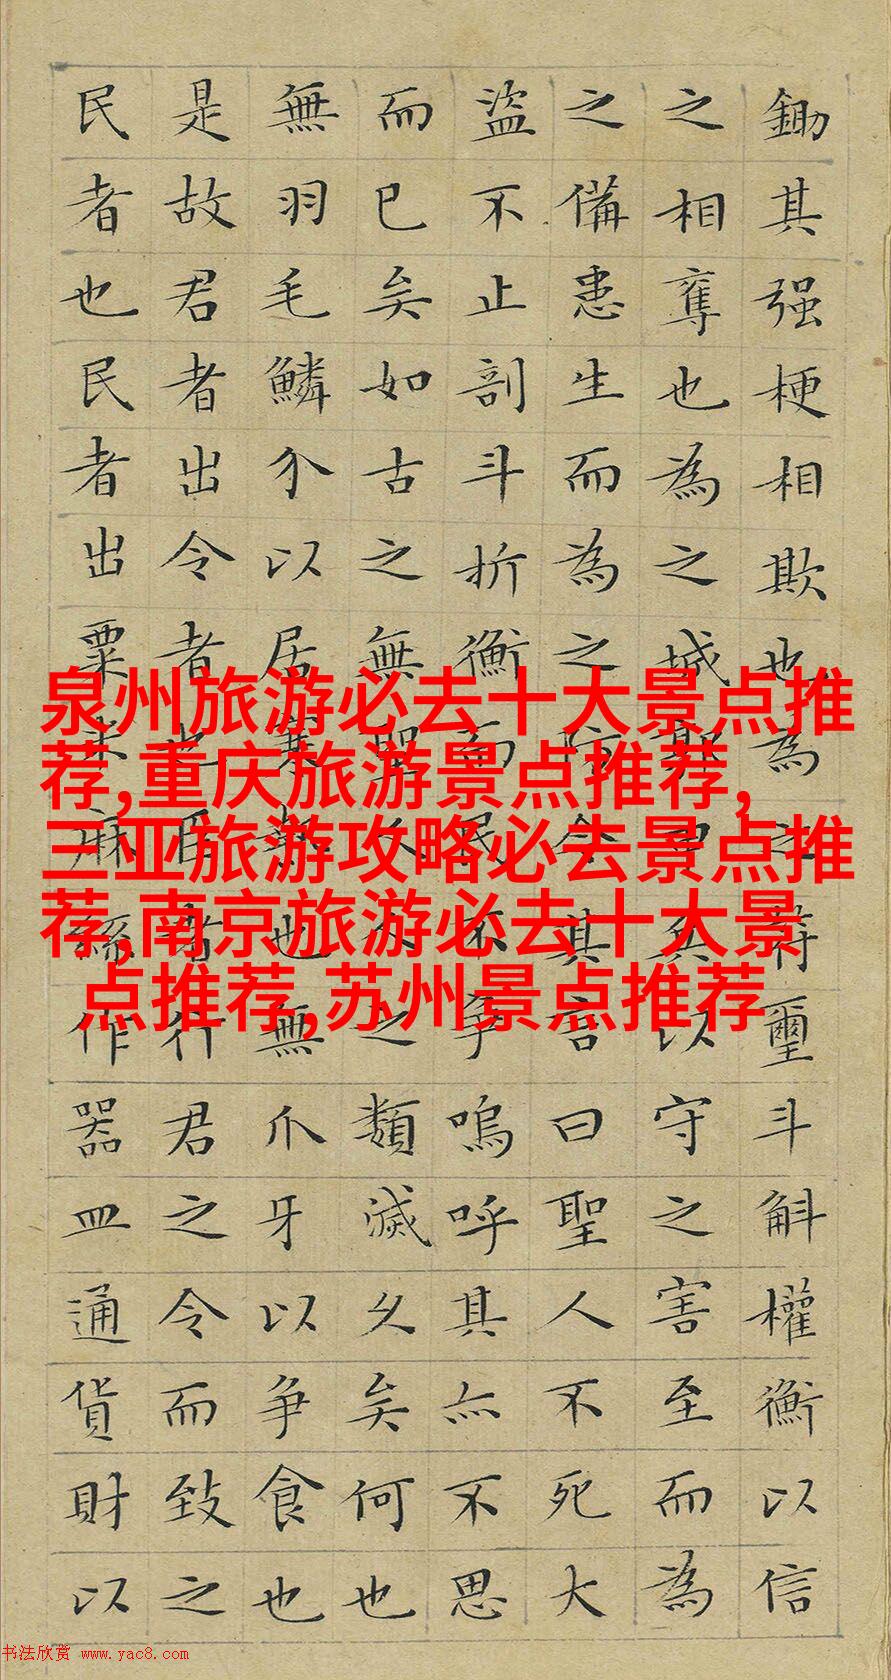 鋤其强梗相欺也為之符璽斗斛權衡以信
之相奪也為之城郭甲兵以守之害至而為
之備患生而為之防今其言曰聖人不死大
盜不止剖斗折衡而民不争嗚呼其亦不思
而已矣如古之無聖人人之類滅久矣何也
無羽毛鱗介以居寒熱也無爪牙以争食也
是故君者出令者也臣者行君之令而致之
民者也民者出粟米麻絲作器皿通貨財以
泉州旅游必去十大景点推
荐,重庆旅游景点推荐,
三亚旅游攻略必去景点推
荐,南京旅游必去十大景
点推荐,苏州景点推荐
书法欣赏 www.yac8.com